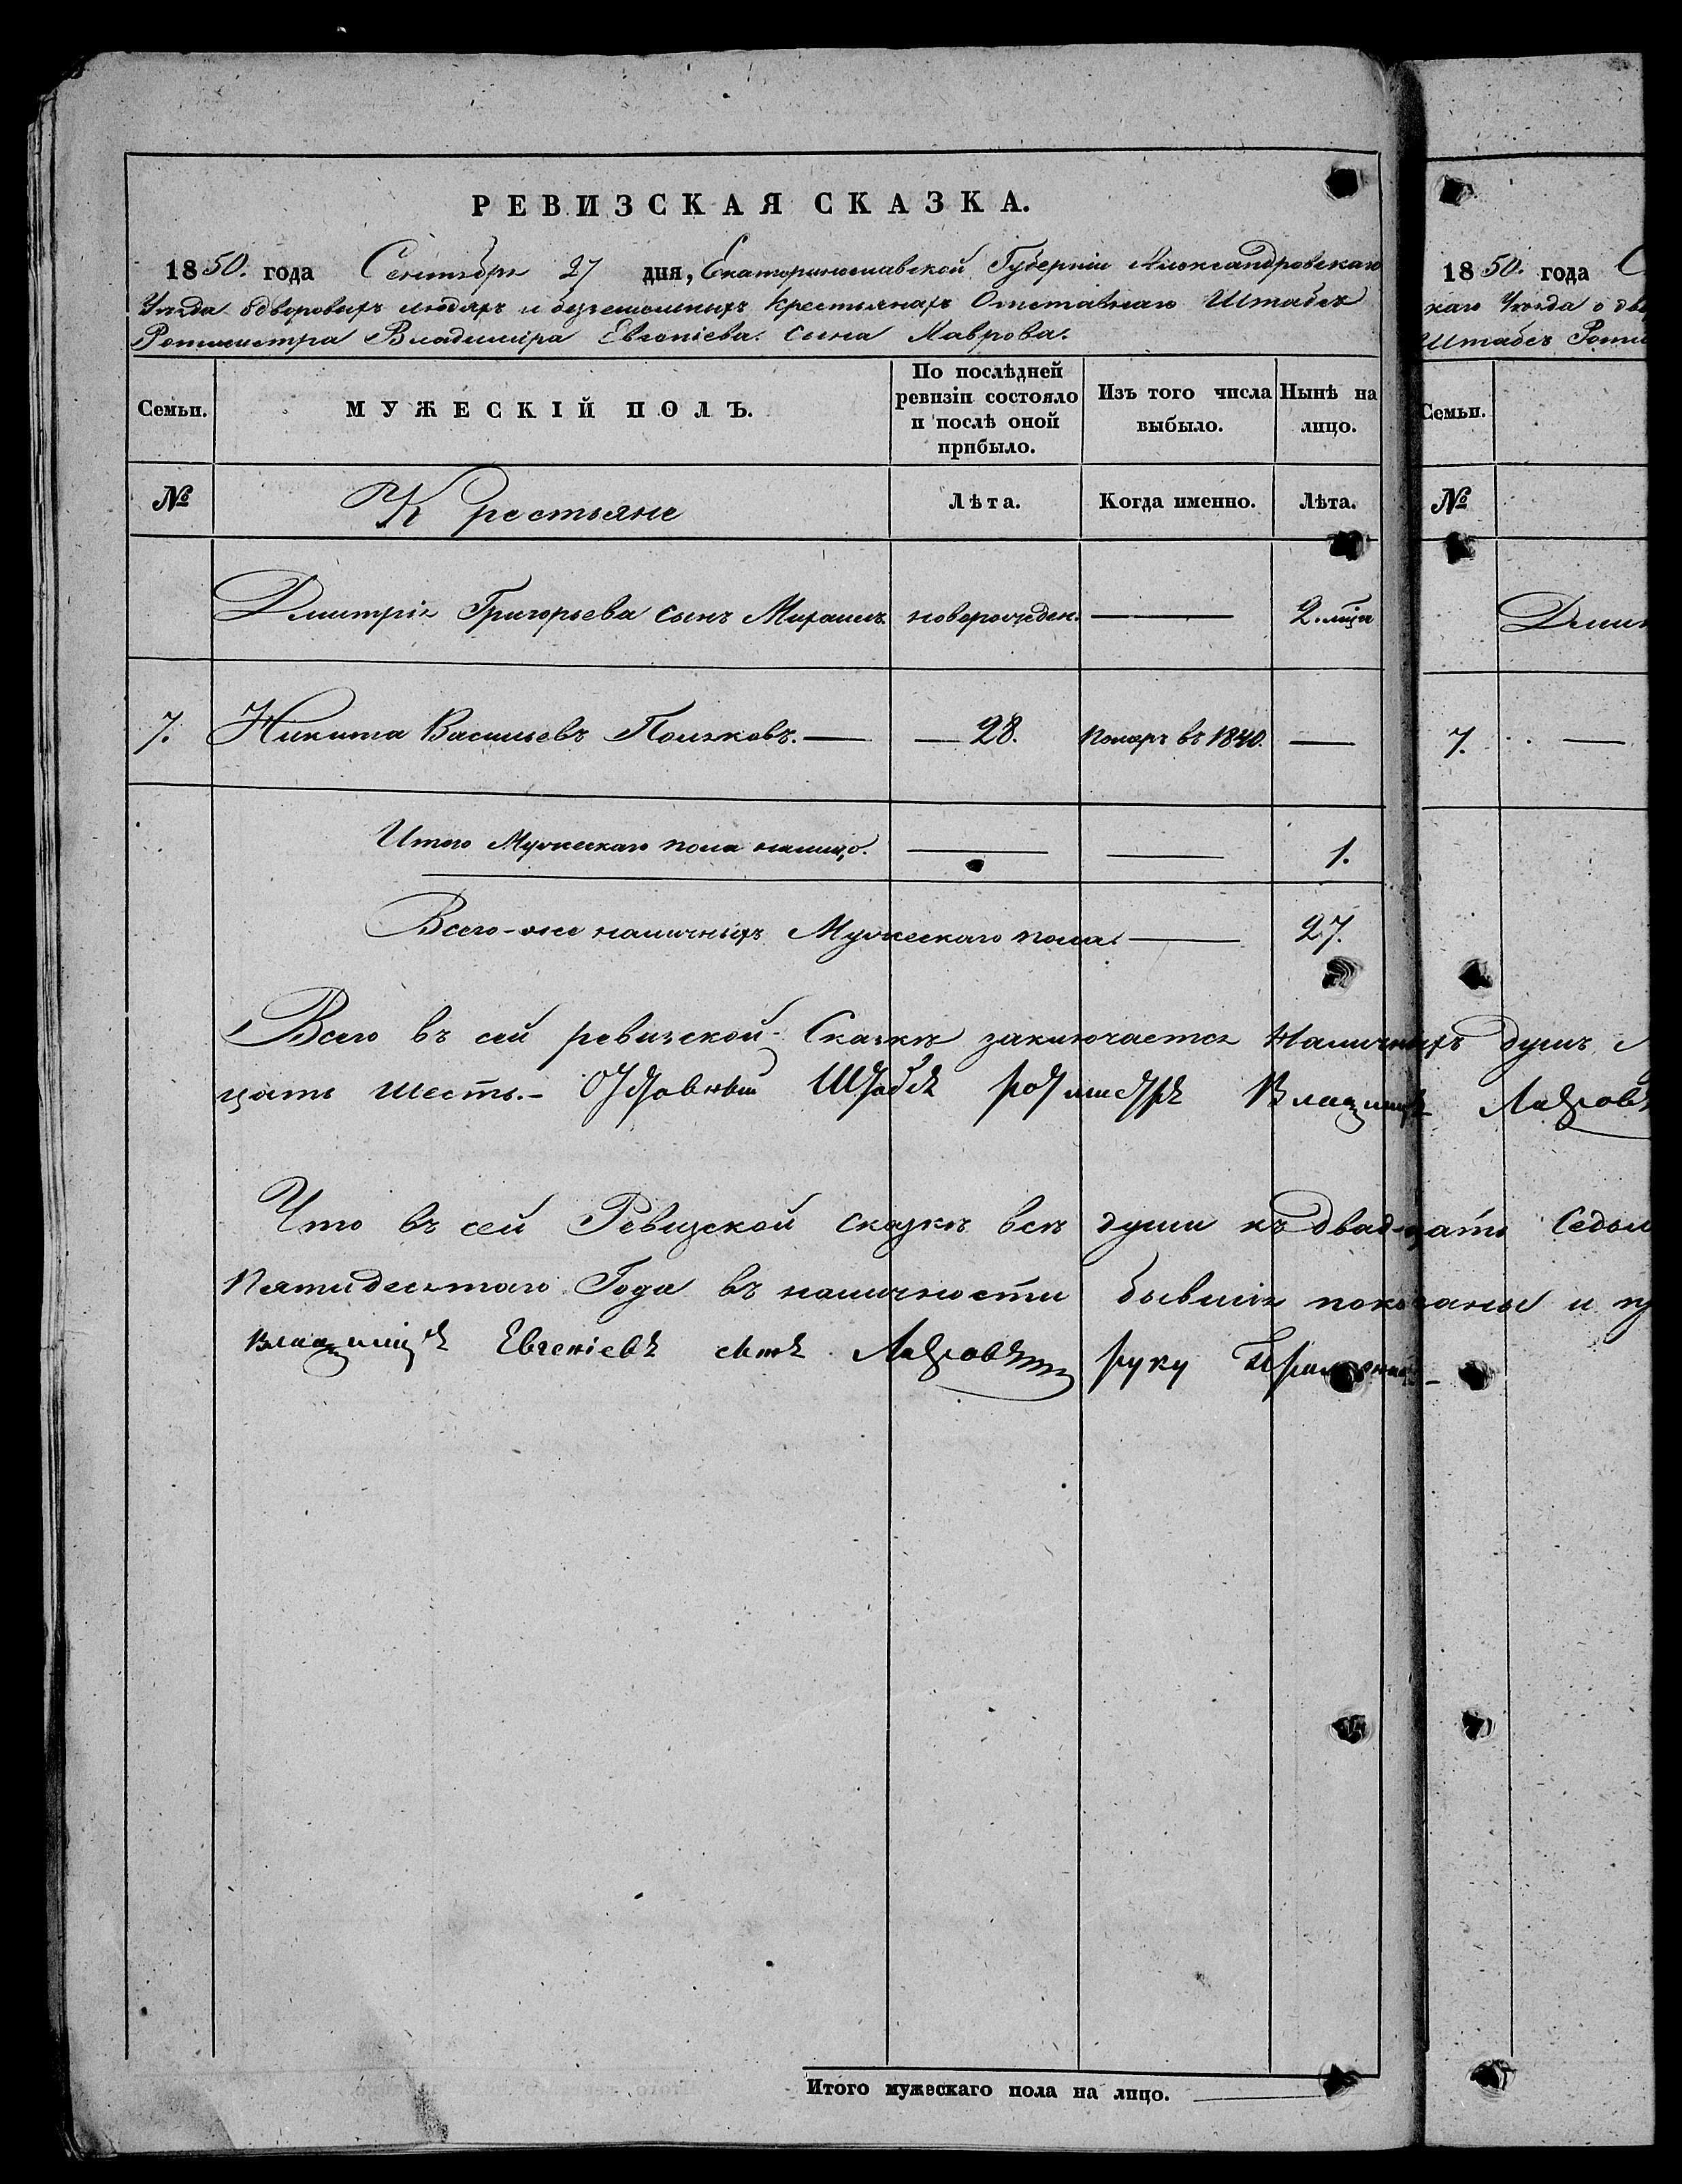 РЕВИЗСКАЯ СКАЗКА.
1850. года Сентября 27 дня, Екатеринославской Губерніи Александровскаго
Уѣзда о дворовыхъ людяхъ и безземельныхъ крестьянахъ Отставнаго Штабсъ
Ротмистра Владиміра Евгеніева сына Лаврова.
Семьи. МУЖЕСКІЙ ПОЛЪ. По послѣдней ревизіи состояло и послѣ оной прибыло. Изъ того числа выбыло. Нынѣ на лицо.
№ Крестьяне Лѣта. Когда именно. Лѣта.
Дмитрія Григорьева сынъ Михаилъ новорожден. — 2. мѣця
7. Никита Васильевъ Поляковъ. — — 28. померъ въ 1840. —
Итого Мужескаго пола налицо. — — 1.
Всего-же наличныхъ Мужескаго пола. — 27.
Всего въ сей ревизской Сказкѣ заключается Наличныхъ душъ
цать шесть. - Отставный Штабсъ ротмистръ Владиміръ Лавровъ
Что въ сей Ревизской сказкѣ всѣ души къ двадцать Седьм
Пятидесятаго Года въ наличности бывшія показаны и пр
Владиміръ Евгеніевъ сынъ Лавровъ руку приложилъ -
Итого мужескаго пола на лицо.
1850. года С
каго Уѣзда о дво
Штабсъ Ротми
Семьи.
№
Дми
7. —